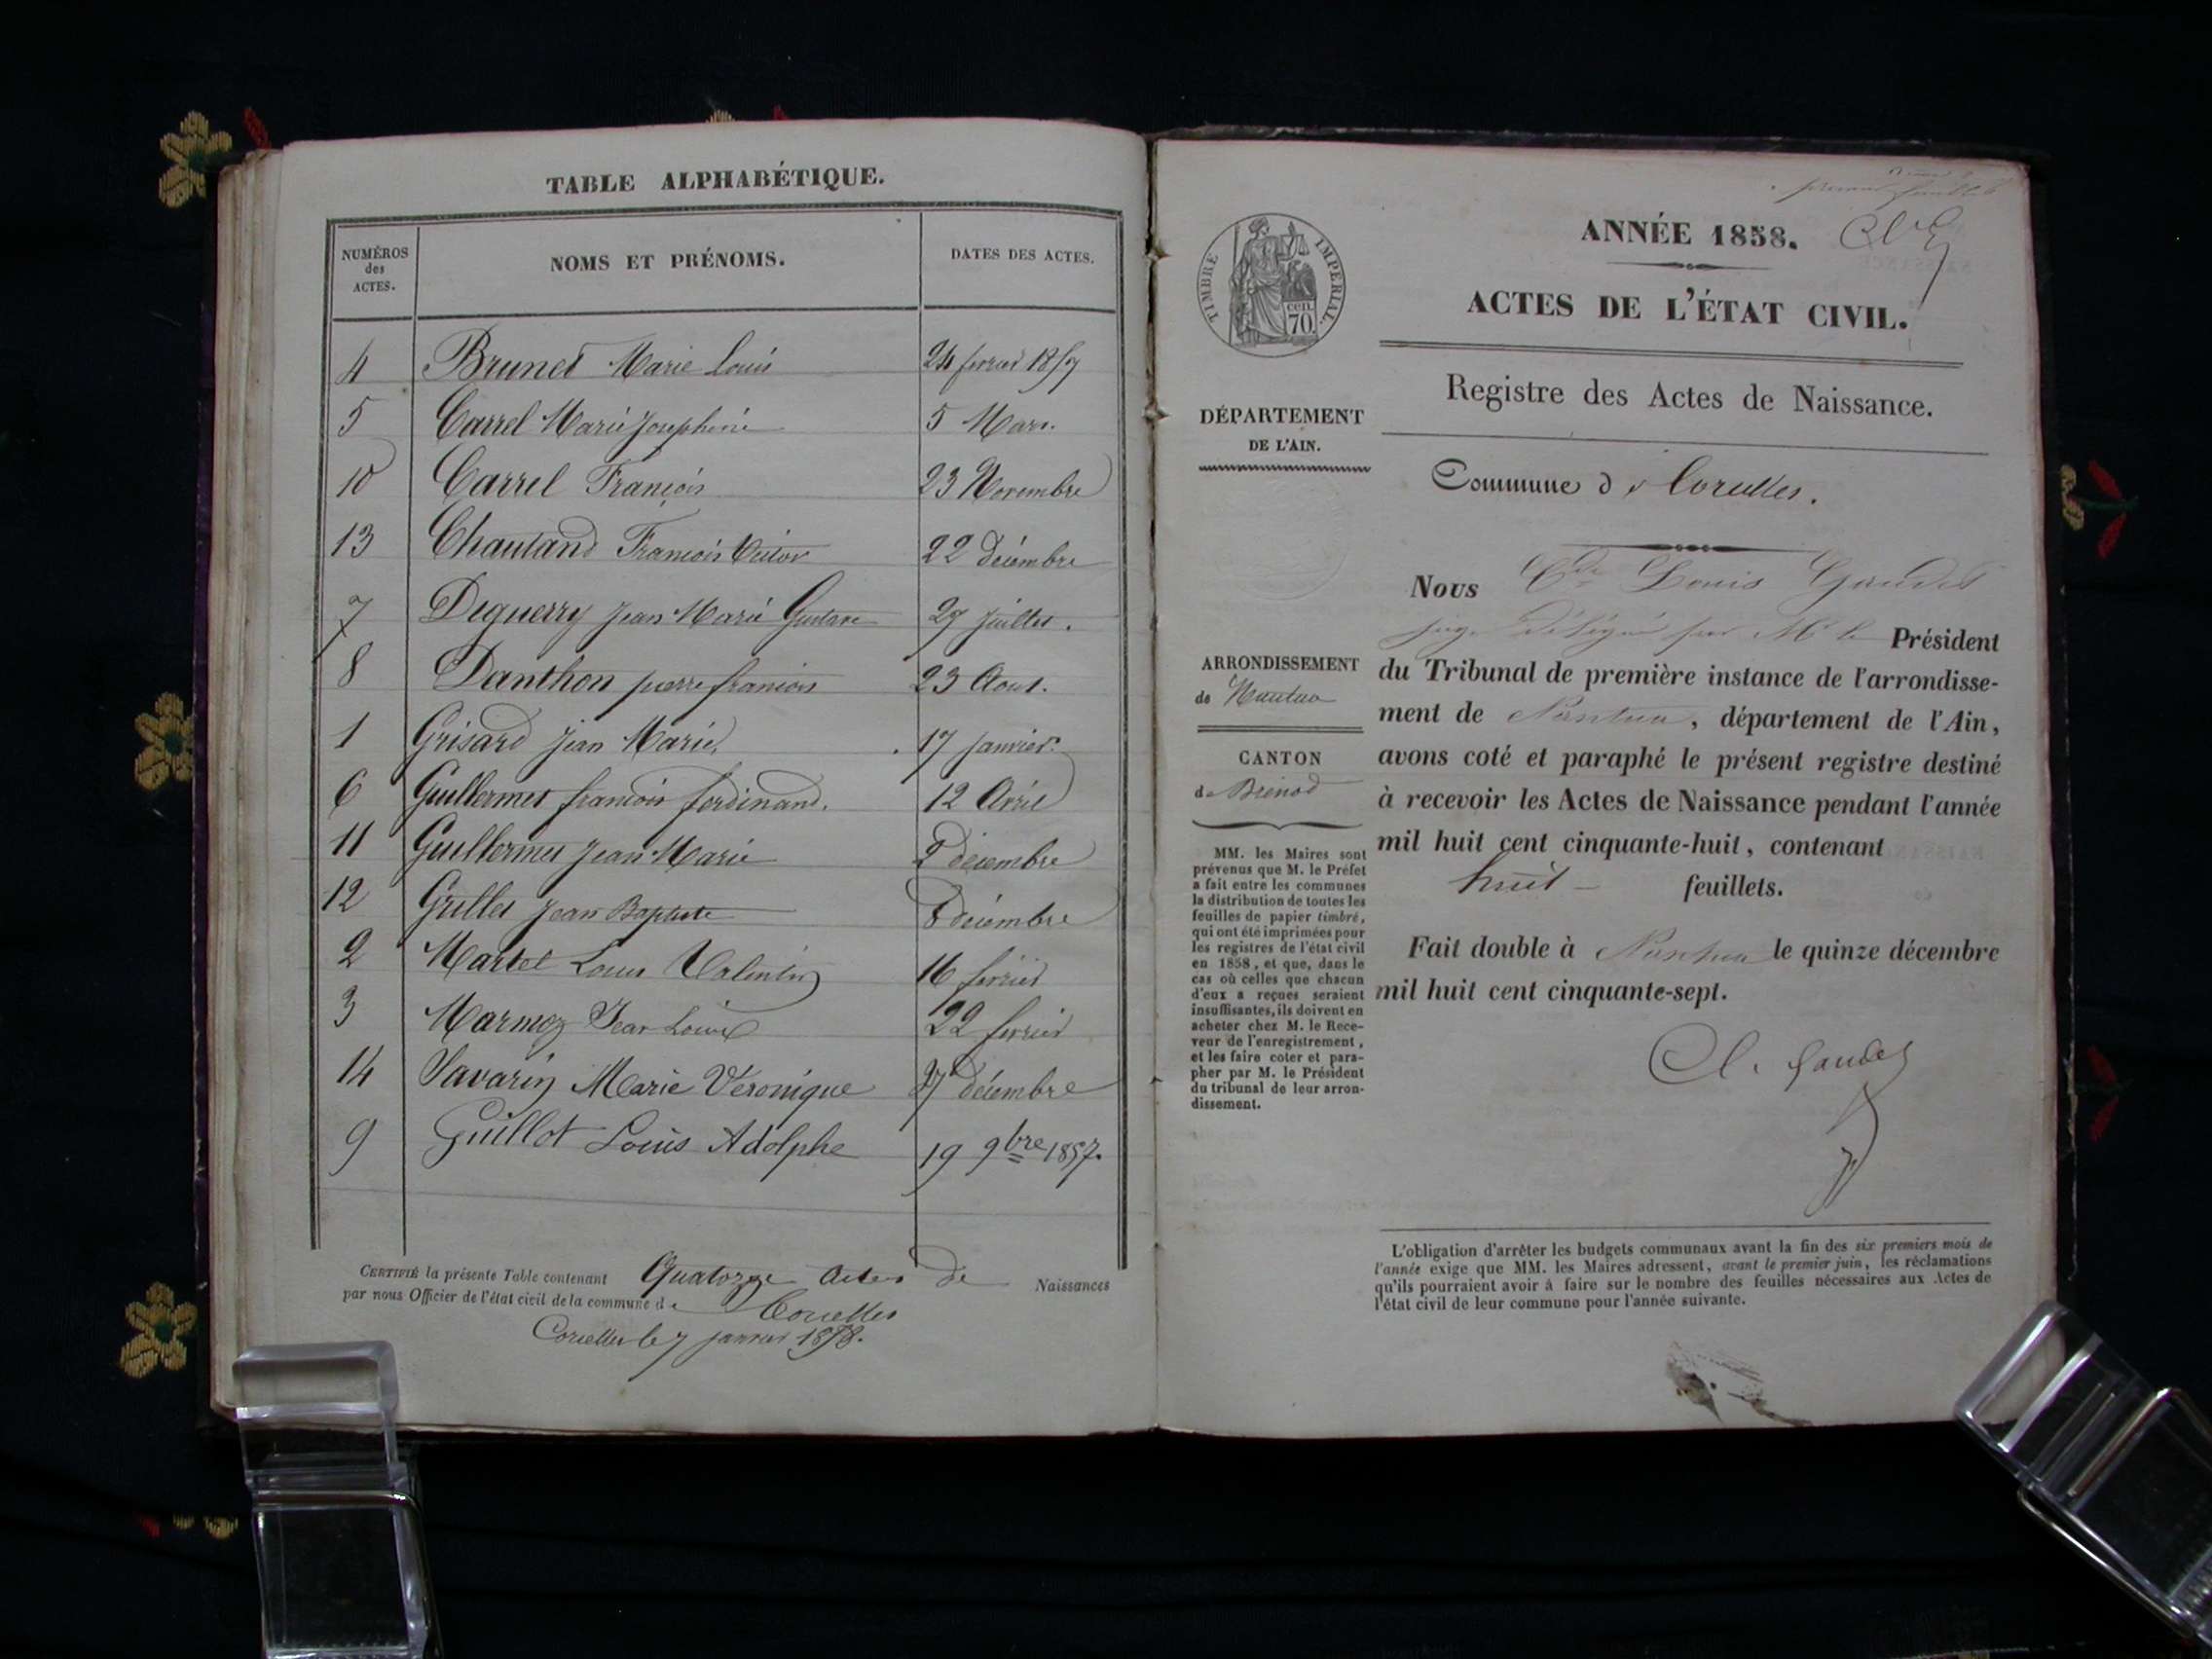 TABLE ALPHABÉTIQUE.
NUMÉROS des ACTES. NOMS ET PRÉNOMS. DATES DES ACTES.
4 Brunet Marie Louis 24 fevrier 1857
5 Carrel Marie Josephine 5 Mars.
10 Carrel François 23 Novembre
13 Chautand François Victor 22 décembre
7 Deguerry Jean Marie Gustave 29 juillet.
8 Danthon pierre françois 23 Aout.
1 Grisard Jean Marie 17 janvier.
6 Guillermet françois ferdinand. 12 Avril
11 Guillermet Jean Marie 2 décembre
12 Grillet Jean Baptiste 8 décembre
2 Martel Louis Valentin 16 février
3 Marmoz Jean Louis 22 fevrier
14 Savarin Marie Véronique 27 décembre
9 Guillot Louis Adolphe 19 9bre 1857.
CERTIFIÉ la présente Table contenant Quatorze Actes de Naissances
par nous Officier de l'état civil de la commune de Corcelles
Corcelles le 7 janvier 1858.
premier feuillet
ANNÉE 1858.
TIMBRE IMPERIAL.
cen. 70.
ACTES DE L'ÉTAT CIVIL.
Registre des Actes de Naissance.
DÉPARTEMENT
DE L'AIN.
Commune d Corcelles.
Nous Cde Louis Gaudet
juge délégué par Mr le Président
du Tribunal de première instance de l'arrondisse-
ment de Nantua, département de l'Ain,
avons coté et paraphé le présent registre destiné
à recevoir les Actes de Naissance pendant l'année
mil huit cent cinquante-huit, contenant
huit feuillets.
Fait double à Nantua le quinze décembre
mil huit cent cinquante-sept.
Cl. Gaudet
ARRONDISSEMENT
de Nantua
CANTON
de Brénod
MM. les Maires sont
prévenus que M. le Préfet
a fait entre les communes
la distribution de toutes les
feuilles de papier timbré,
qui ont été imprimées pour
les registres de l'état civil
en 1858, et que, dans le
cas où celles que chacun
d'eux a reçues seraient
insuffisantes, ils doivent en
acheter chez M. le Rece-
veur de l'enregistrement,
et les faire coter et para-
pher par M. le Président
du tribunal de leur arron-
dissement.
L'obligation d'arrêter les budgets communaux avant la fin des six premiers mois de
l'année exige que MM. les Maires adressent, avant le premier juin, les réclamations
qu'ils pourraient avoir à faire sur le nombre des feuilles nécessaires aux Actes de
l'état civil de leur commune pour l'année suivante.